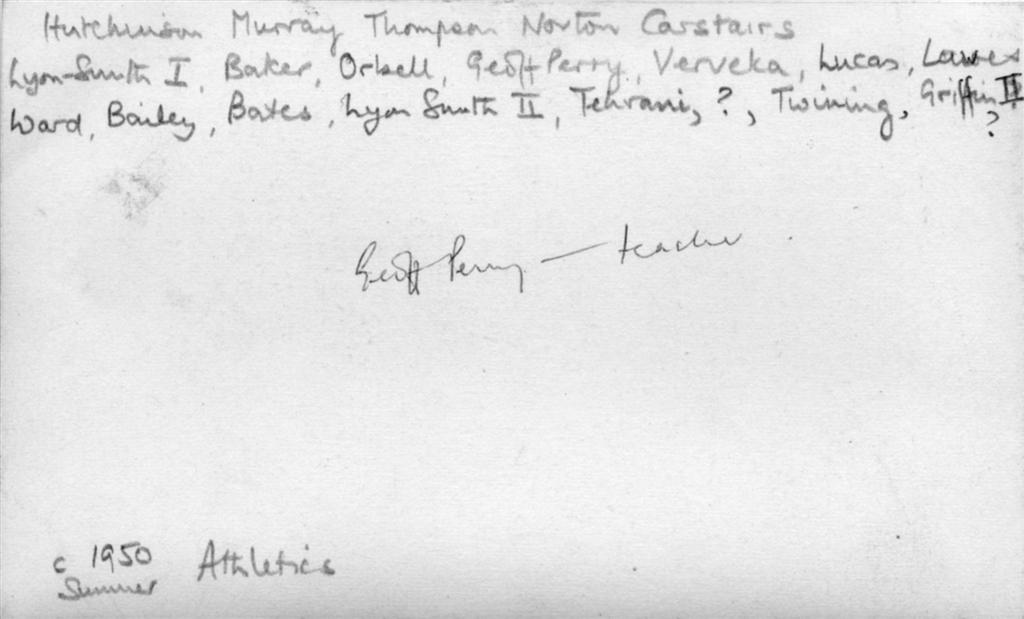 Hutchinson Murray Thompson Norton Carstairs
Lyon-Smith I, Baker, Orbell, Geoff Perry, Verveka, Lucas, Lawes
Ward, Bailey, Bates, Lyon Smith II, Tehrani, ?, Twining, Griffin II
?
Geoff Perry — teacher
c 1950 Athletics
Summer